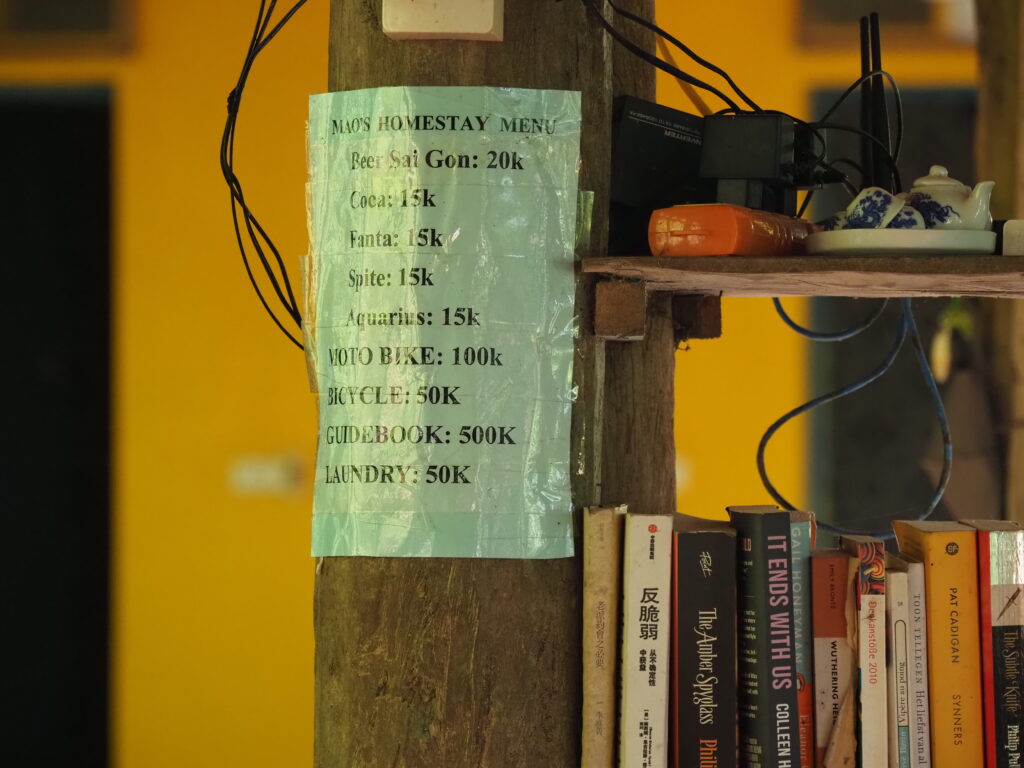 MAO'S HOMESTAY MENU
Beer Sai Gon: 20k
Coca: 15k
Fanta: 15k
Spite: 15k
Aquarius: 15k
MOTO BIKE: 100k
BICYCLE: 50K
GUIDEBOOK: 500K
LAUNDRY: 50K
INVERTER
反脆弱
从不确定性
中获益
The Amber Spyglass
Phili
IT ENDS WITH US
COLLEEN H
GAIL HONEYMAN
Eleanor
EMILY BRONTË
WUTHERING HEI
Denkanstöße 2010
TOON TELLEGEN Het liefst van al
PAT CADIGAN SYNNERS
The Subtle Knife
Philip Pu